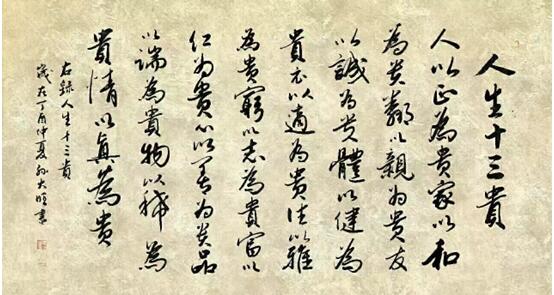 人生十三貴
人以正為貴家以和
為貴鄰以親為貴友
以誠為貴體以健為
貴衣以適為貴住以雅
為貴窮以志為貴富以
仁為貴心以善為貴品
以端為貴物以稀為
貴情以真為貴
右錄人生十三貴
歲在丁酉仲夏孫大書